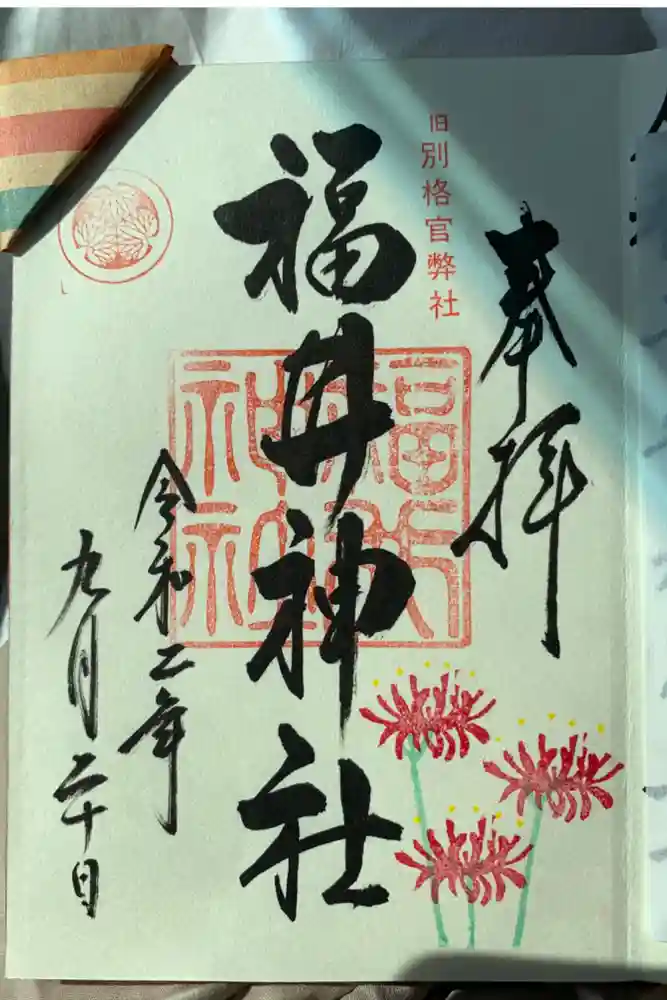 奉拝
旧別格官弊社
福井神社
福井神社
令和二年
九月二十日